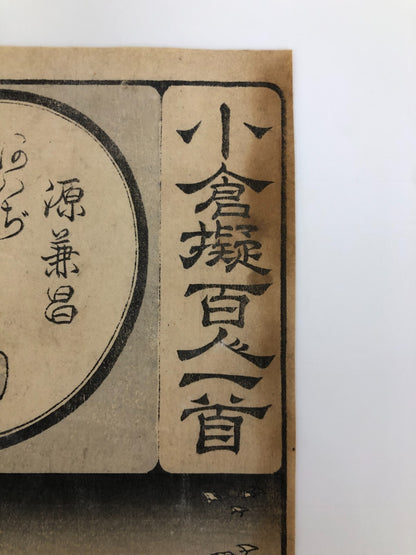 小倉擬百人一首
源兼昌
あハぢ